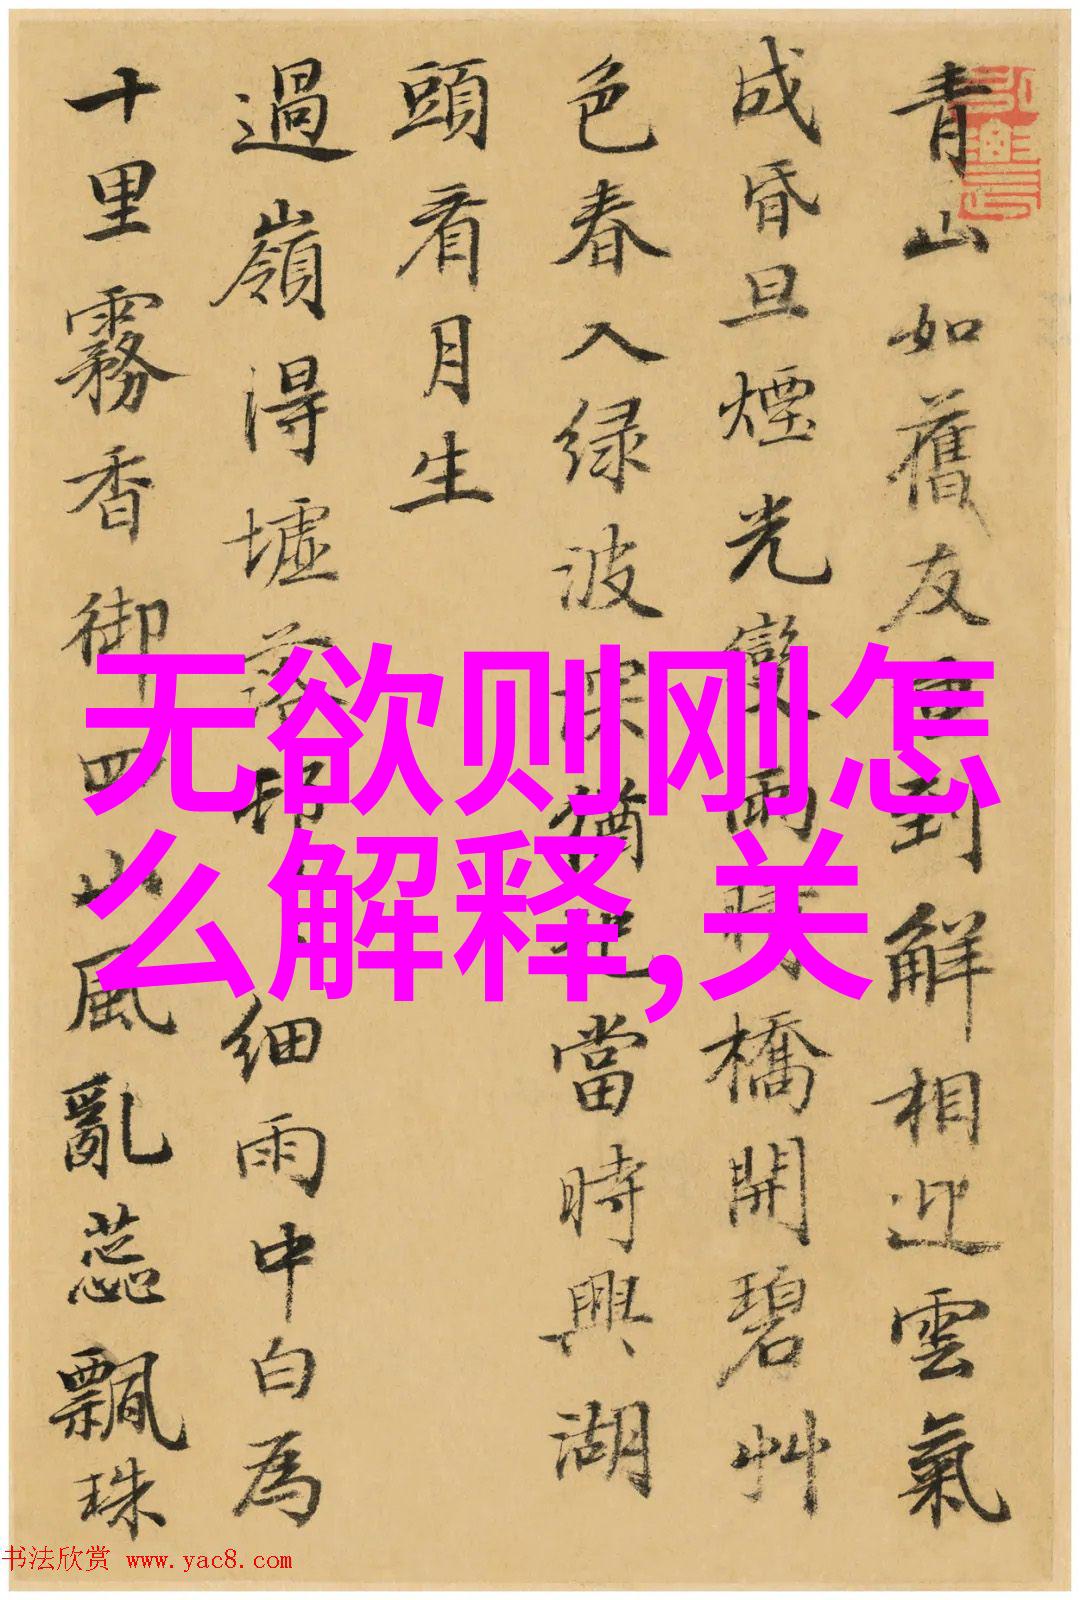 青山如舊友到解相迎雲氣
成昏旦煙光變雨晴橋開碧艸
色春入緑波深猶當時興湖
頭看月生
過嶺得墟落細雨中白為
十里霧香御四山風亂蕊飄珠
无欲则刚怎
么解释,关
书法欣赏 www.yac8.com